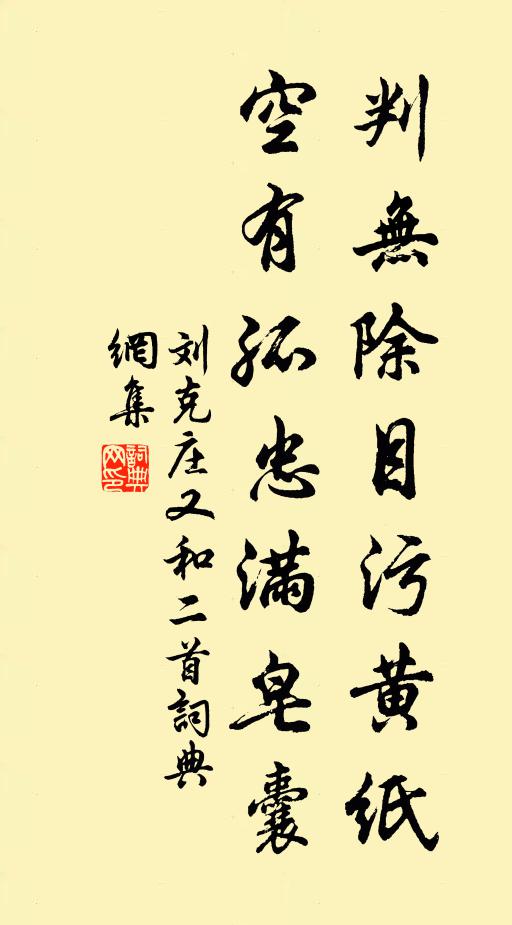 判無除目污黄紙
空有孤忠滿皂囊
刘克庄又和二首詞典
網集
詞典
网印